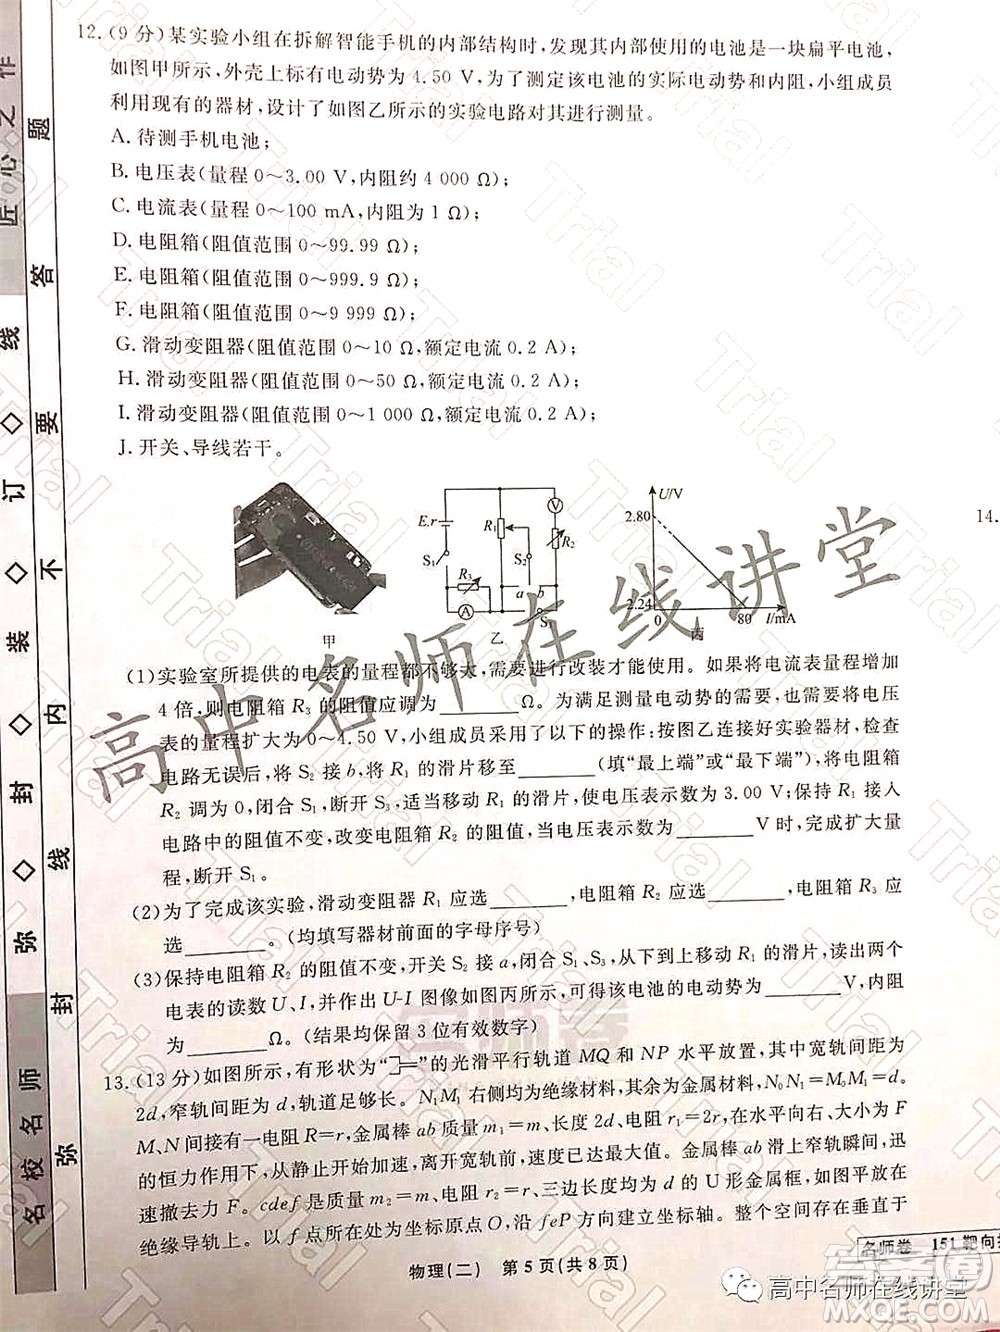 12.(9 分)某实验小组在拆解智能手机的内部结构时,发现其内部使用的电池是一块扁平电池,
如图甲所示,外壳上标有电动势为 4.50 V,为了测定该电池的实际电动势和内阻,小组成员
利用现有的器材,设计了如图乙所示的实验电路对其进行测量。
A. 待测手机电池;
B. 电压表(量程 0～3.00 V,内阻约 4 000 Ω);
C. 电流表(量程 0～100 mA,内阻为 1 Ω);
D. 电阻箱(阻值范围 0～99.99 Ω);
E. 电阻箱(阻值范围 0～999.9 Ω);
F. 电阻箱(阻值范围 0～9 999 Ω);
G. 滑动变阻器(阻值范围 0～10 Ω,额定电流 0.2 A);
H. 滑动变阻器(阻值范围 0～50 Ω,额定电流 0.2 A);
I. 滑动变阻器(阻值范围 0～1 000 Ω,额定电流 0.2 A);
J. 开关、导线若干。
E,r
S₁
R₃
A
R₁
S₂
a
b
V
R₂
S₃
U/V
2.80
2.24
0
80
I/mA
甲
乙
丙
(1)实验室所提供的电表的量程都不够大,需要进行改装才能使用。如果将电流表量程增加
4 倍,则电阻箱 R₃ 的阻值应调为________Ω。为满足测量电动势的需要,也需将电压
表的量程扩大为 0～4.50 V,小组成员采用了以下的操作:按图乙连接好实验器材,检查
电路无误后,将 S₂ 接 b,将 R₁ 的滑片移至________(填“最上端”或“最下端”),将电阻箱
R₂ 调为 0,闭合 S₁,断开 S₃,适当移动 R₁ 的滑片,使电压表示数为 3.00 V;保持 R₁ 接入
电路中的阻值不变,改变电阻箱 R₂ 的阻值,当电压表示数为________V 时,完成扩大量
程,断开 S₁。
(2)为了完成该实验,滑动变阻器 R₁ 应选________,电阻箱 R₂ 应选________,电阻箱 R₃ 应
选________。(均填写器材前面的字母序号)
(3)保持电阻箱 R₂ 的阻值不变,开关 S₂ 接 a,闭合 S₁、S₃,从下到上移动 R₁ 的滑片,读出两个
电表的读数 U、I,并作出 U-I 图像如图丙所示,可得该电池的电动势为________V,内阻
为________Ω。(结果均保留 3 位有效数字)
13.(13 分)如图所示,有形状为“ ”的光滑平行轨道 MQ 和 NP 水平放置,其中宽轨间距为
2d,窄轨间距为 d,轨道足够长。N₁M₁ 右侧均为绝缘材料,其余为金属材料,N₀M₀⊥N₁M₁。
M、N 间接有一电阻 R=r,金属棒 ab 质量 m₁=m、长度 2d、电阻 r₁=2r,在水平向右、大小为 F
的恒力作用下,从静止开始加速,离开宽轨前,速度已达最大值。金属棒 ab 滑上窄轨瞬间,迅
速撤去力 F。cdef 是质量 m₂=m、电阻 r₂=r、三边长度均为 d 的 U 形金属框,如图平放在
绝缘导轨上。以 f 点所在处为坐标原点 O,沿 feP 方向建立坐标轴。整个空间存在垂直
物理(二)　第 5 页(共 8 页)
名师卷
151·靶向
14.
匠心之作
名校名师
弥封线内不要答题
弥◇封◇装◇订◇线
高中名师在线讲堂
名师卷
高中名师在线讲堂
答案圈
MXQE.COM
Trial